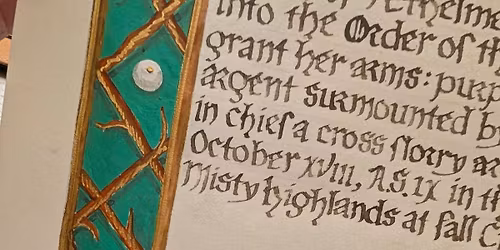 into the Order of th
grant her arms: purp
argent surmounted b
in chief a cross flory
October xviii, A.S. LX in th
Misty highlands at fall